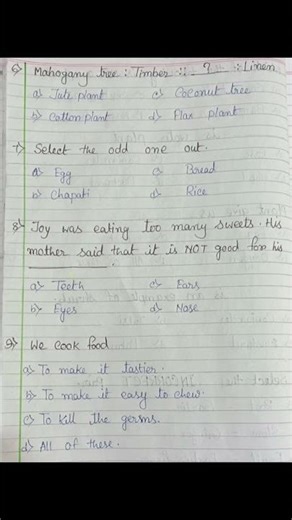 6) Mahogany tree : Timber :: ? : Linen
a) Jute plant c) Coconut tree
b) Cotton plant d) Flax plant
7) Select the odd one out.
a) Egg c) Bread
b) Chapati d) Rice
8) Joy was eating too many sweets. His
mother said that it is NOT good for his
.
a) Teeth c) Ears
b) Eyes d) Nose
9) We cook food
a) To make it tastier.
b) To make it easy to chew.
c) To kill the germs.
d) All of these.